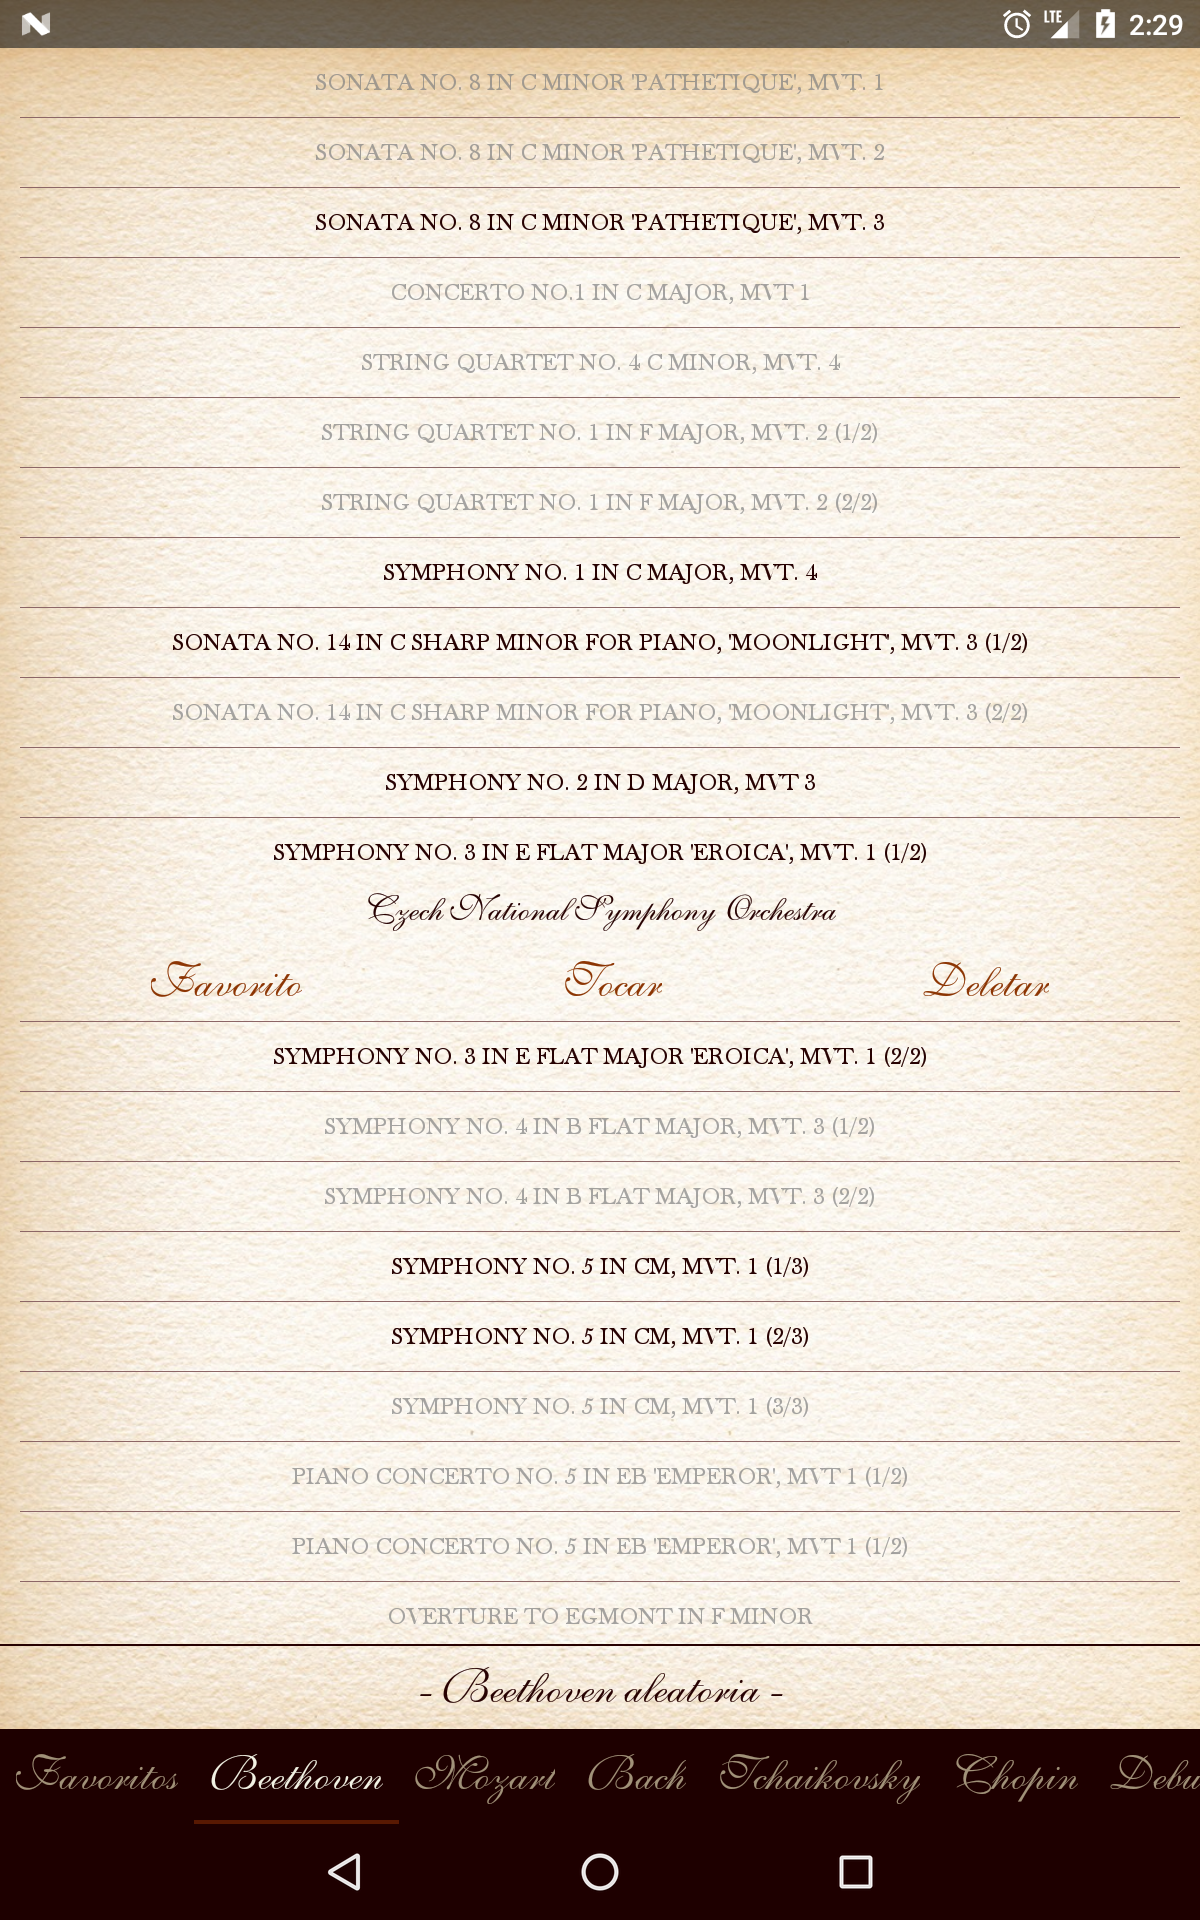 LTE 2:29
SONATA NO. 8 IN C MINOR 'PATHETIQUE', MVT. 1
SONATA NO. 8 IN C MINOR 'PATHETIQUE', MVT. 2
SONATA NO. 8 IN C MINOR 'PATHETIQUE', MVT. 3
CONCERTO NO.1 IN C MAJOR, MVT 1
STRING QUARTET NO. 4 C MINOR, MVT. 4
STRING QUARTET NO. 1 IN F MAJOR, MVT. 2 (1/2)
STRING QUARTET NO. 1 IN F MAJOR, MVT. 2 (2/2)
SYMPHONY NO. 1 IN C MAJOR, MVT. 4
SONATA NO. 14 IN C SHARP MINOR FOR PIANO, 'MOONLIGHT', MVT. 3 (1/2)
SONATA NO. 14 IN C SHARP MINOR FOR PIANO, 'MOONLIGHT', MVT. 3 (2/2)
SYMPHONY NO. 2 IN D MAJOR, MVT 3
SYMPHONY NO. 3 IN E FLAT MAJOR 'EROICA', MVT. 1 (1/2)
Czech National Symphony Orchestra
Favorito Tocar Deletar
SYMPHONY NO. 3 IN E FLAT MAJOR 'EROICA', MVT. 1 (2/2)
SYMPHONY NO. 4 IN B FLAT MAJOR, MVT. 3 (1/2)
SYMPHONY NO. 4 IN B FLAT MAJOR, MVT. 3 (2/2)
SYMPHONY NO. 5 IN CM, MVT. 1 (1/3)
SYMPHONY NO. 5 IN CM, MVT. 1 (2/3)
SYMPHONY NO. 5 IN CM, MVT. 1 (3/3)
PIANO CONCERTO NO. 5 IN EB 'EMPEROR', MVT 1 (1/2)
PIANO CONCERTO NO. 5 IN EB 'EMPEROR', MVT 1 (1/2)
OVERTURE TO EGMONT IN F MINOR
- Beethoven aleatoria -
Favoritos Beethoven Mozart Bach Tchaikovsky Chopin Debu